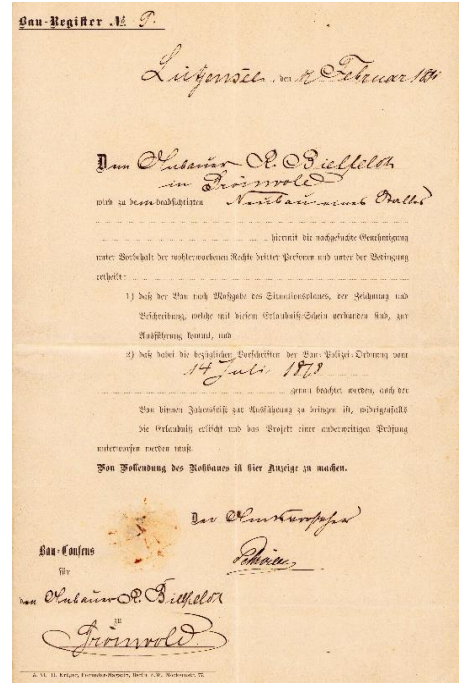 Bau-Register № 9.
Lütjensee, den 12 Februar 1891
Dem Anbauer R. Bielfeldt
in Grönwold
wird zu dem beabsichtigten Neubau eines Stalles
hiermit die nachgesuchte Genehmigung
unter Vorbehalt der wohlerworbenen Rechte dritter Personen und unter der Bedingung
ertheilt:
1) daß der Bau nach Maßgabe des Situationsplanes, der Zeichnung und
Beschreibung, welche mit diesem Erlaubniß-Schein verbunden sind, zur
Ausführung kommt, und
2) daß dabei die bezüglichen Vorschriften der Bau-Polizei-Ordnung vom
14 Juli 1878
genau beachtet werden, auch der
Bau binnen Jahresfrist zur Ausführung zu bringen ist, widrigenfalls
die Erlaubniß erlischt und das Projekt einer anderweitigen Prüfung
unterworfen werden muß.
Von Vollendung des Rohbaues ist hier Anzeige zu machen.
Der Amtsvorsteher
Bau-Consens
für
den Anbauer R. Bielfeldt
zu
Grönwold.